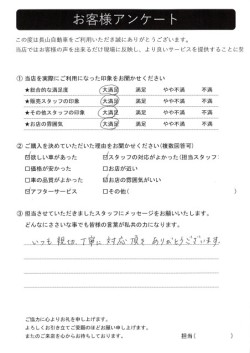 お客様アンケート
この度は長山自動車をご利用いただき誠にありがとうございます。
当店ではお客様の声を出来るだけ現場に反映し、より良いサービスを提供することに努
① 当店を実際にご利用になった印象をお聞かせください
★総合的な満足度 大満足 満足 やや不満 不満
★販売スタッフの印象 大満足 満足 やや不満 不満
★その他スタッフの印象 大満足 満足 やや不満 不満
★お店の雰囲気 大満足 満足 やや不満 不満
② ご購入を決めていただいた理由をお聞かせください(複数回答可)
☑欲しい車があった ☑スタッフの対応がよかった(担当スタッフ:
□価格が安かった □お店が近い
□車の品質がよかった ☑お店の雰囲気がいい
☑アフターサービス □その他(
③ 担当させていただきましたスタッフにメッセージをお願いいたします。
どんなにささいな事でも皆様の言葉が私共の力になります。
いつも 親切、丁寧に 対応 頂き ありがとうございます。
ご協力に心よりお礼を申し上げます。
よろしくお引き立てご愛顧のほどお願い申し上げます。
またのご来店を心からお待ちしております。 担当(